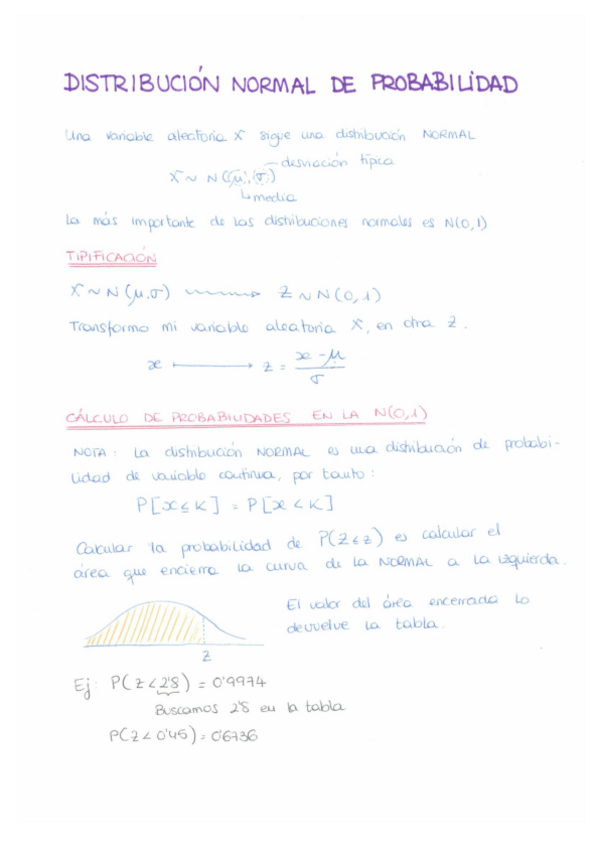 DISTRIBUCIÓN NORMAL DE PROBABILIDAD
Una variable aleatoria X sigue una distribución NORMAL
desviación típica
X ~ N(μ, σ)
media
La más importante de las distribuciones normales es N(0,1)
TIPIFICACIÓN
X ~ N(μ,σ) Z ~ N(0,1)
Transformo mi variable aleatoria X, en otra Z.
x → z = (x - μ) / σ
CÁLCULO DE PROBABILIDADES EN LA N(0,1)
NOTA: La distribución NORMAL es una distribución de probabi-
lidad de variable continua, por tanto:
P[x ≤ K] = P[x < K]
Calcular la probabilidad de P(Z ≤ z) es calcular el
área que encierra la curva de la NORMAL a la izquierda.
El valor del área encerrada lo
devuelve la tabla.
Z
Ej: P(Z < 2'8) = 0'9974
Buscamos 2'8 en la tabla
P(Z < 0'45) = 0'6736